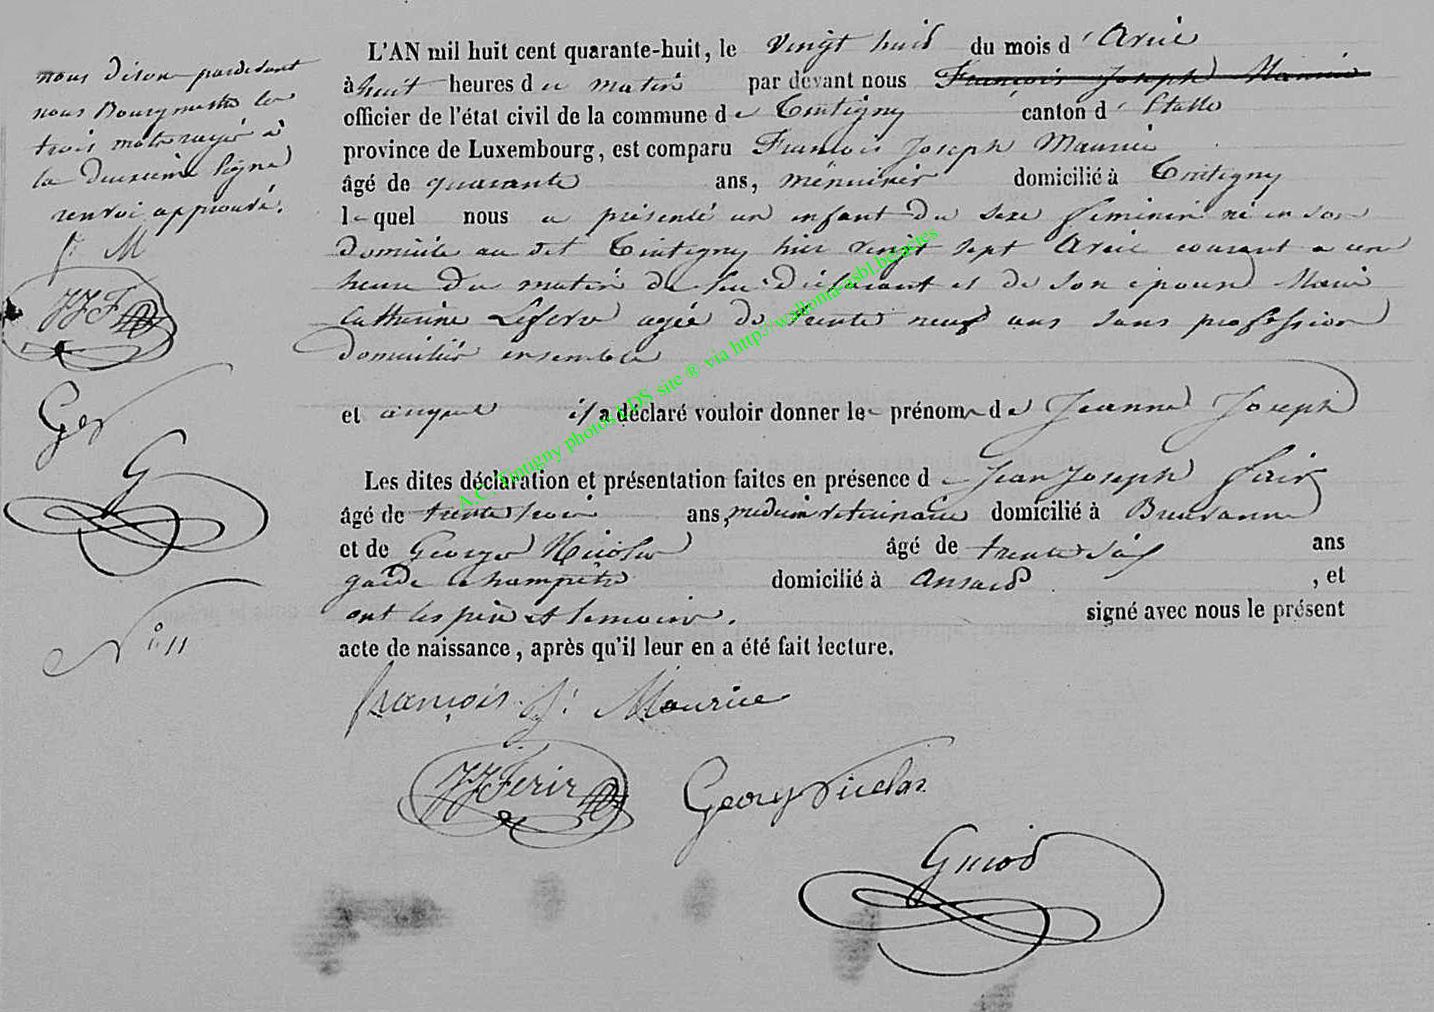 nous dison pardevant
nous Bourgmestre les
trois mots rayés à
la deuxieme ligne
renvoi approuvé.
f. M
JJF
Ger
G
N° 11
L'AN mil huit cent quarante-huit, le vingt huit du mois d'Avril
à huit heures du matin par devant nous François Joseph Maurice
officier de l'état civil de la commune de Tintigny canton d'Etalle
province de Luxembourg, est comparu François Joseph Maurice
âgé de quarante ans, ménuisier domicilié à Tintigny
lequel nous a présenté un enfant du sexe feminin né en son
domicile au dit Tintigny hier vingt sept Avril courant a un
heure du matin de lui déclarant et de son épouse Marie
Catherine Lefevre agée de trente neuf ans sans profession
domiciliés ensemble
et auquel il a déclaré vouloir donner le prénom de Jeanne Joseph
Les dites déclaration et présentation faites en présence de Jean Joseph Ferir
âgé de trente trois ans, medecin vétérinaire domicilié à Breuvanne
et de George Nicolas âgé de trente six ans
garde champêtre domicilié à Ansart , et
ont les père et temoins. signé avec nous le présent
acte de naissance, après qu'il leur en a été fait lecture.
françois J. Maurice
JJFerir Georg Nicolas
A.C. Tintigny photos LDS site ® via http://wallonia-asbl.be/actes